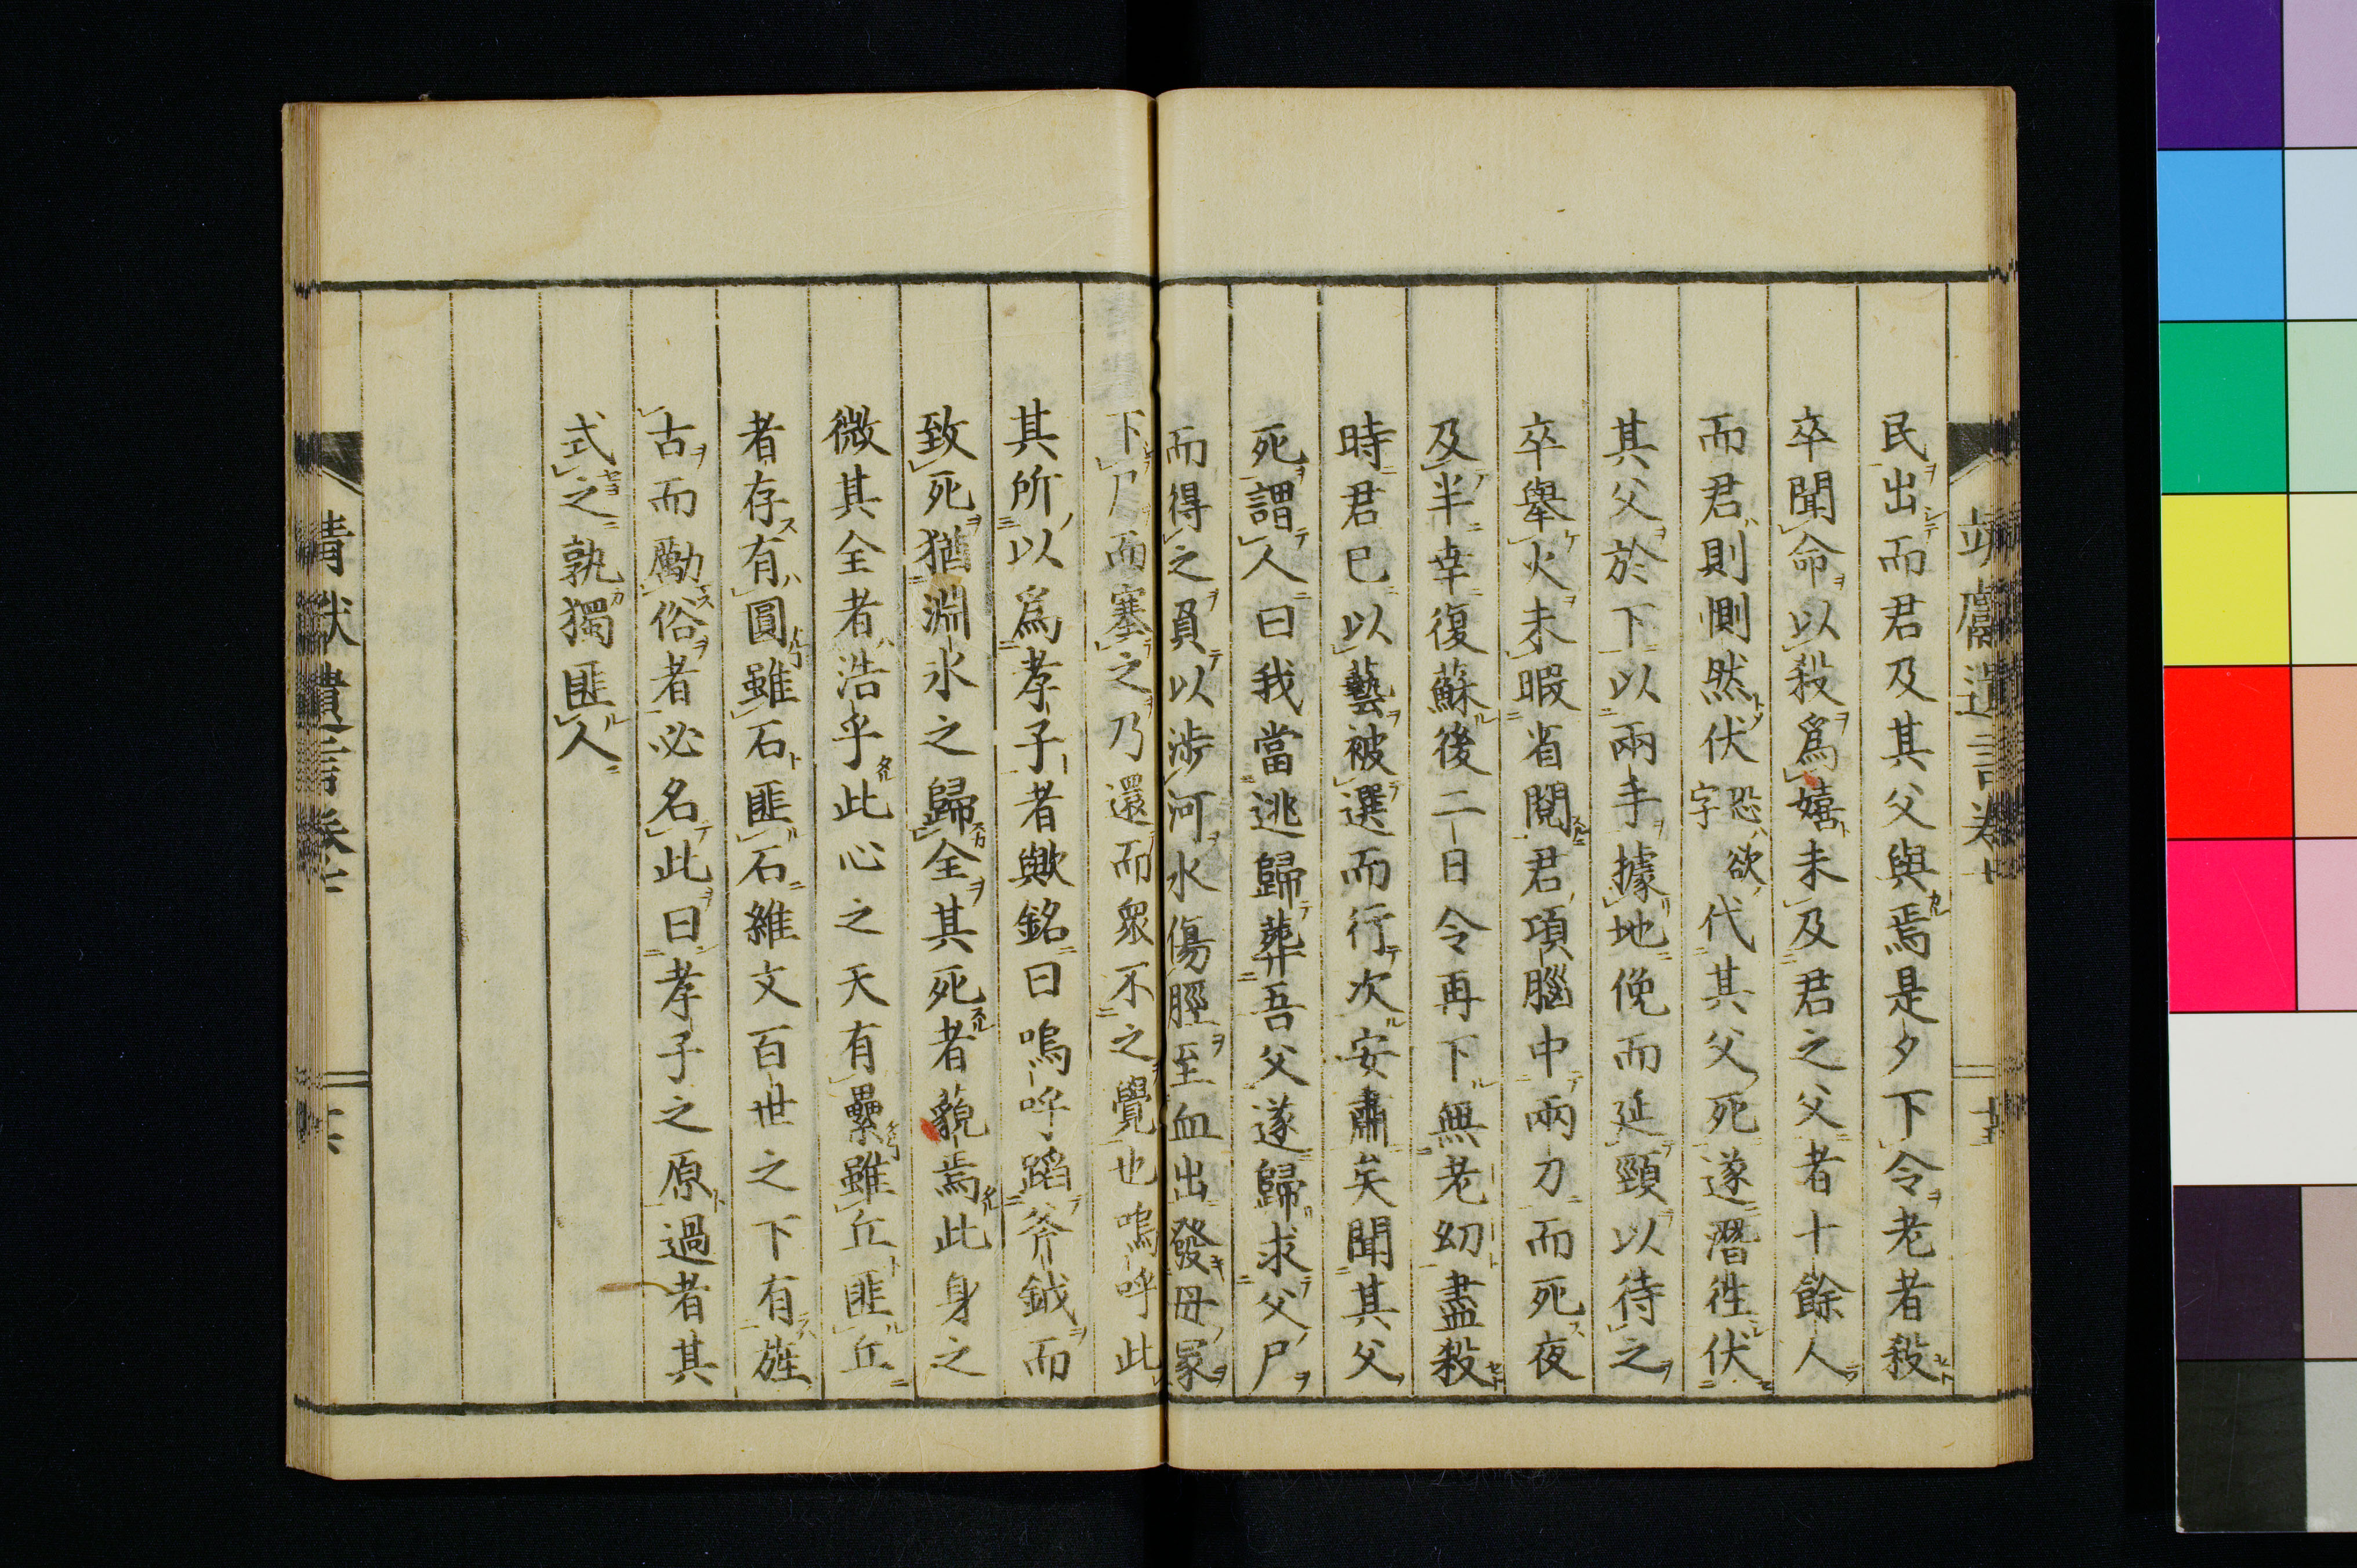 民出而君及其父與焉是夕下令老者殺
卒聞命以殺爲嬉未及君之父者十餘人
而君則惻然伏恐欲字代其父死遂潛徃伏
其父於下以兩手據地俛而延頸以待之
卒舉火未暇省閱君項腦中兩刀而死夜
及半幸復蘇後二日令再下無老幼盡殺
時君已以藝被選而行次安肅矣聞其父
死謂人曰我當逃歸葬吾父遂歸求父尸
而得之負以涉河水傷脛至血出發母冢
下尸而塞之乃還而衆不之覺也嗚呼此
其所以爲孝子者歟銘曰嗚呼蹈斧鉞而
致死猶淵氷之歸全其死者藐焉此身之
微其全者浩乎此心之天有纍雖丘匪丘
者存有圓雖石匪石維文百世之下有旌
古而勵俗者必名此曰孝子之原過者其
式之孰獨匪人